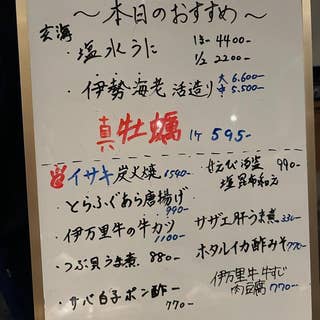 ～本日のおすすめ～
玄海
・塩水うに 1ヶ 4400-
1/2 2200-
・伊勢海老 活造り 大 6.600-
中 5.500-
真牡蠣 1ヶ 595-
イサキ炭火焼 1540-
・とらふぐあら唐揚げ 990-
・伊万里牛の牛カツ 1100-
・つぶ貝うま煮 880-
・サバ白子ポン酢 770-
・甘えび 塩昆布和え 990-
サザエ肝うま煮 330-
・ホタルイカ酢みそ 770-
伊万里牛 牛すじ
肉豆腐 770-